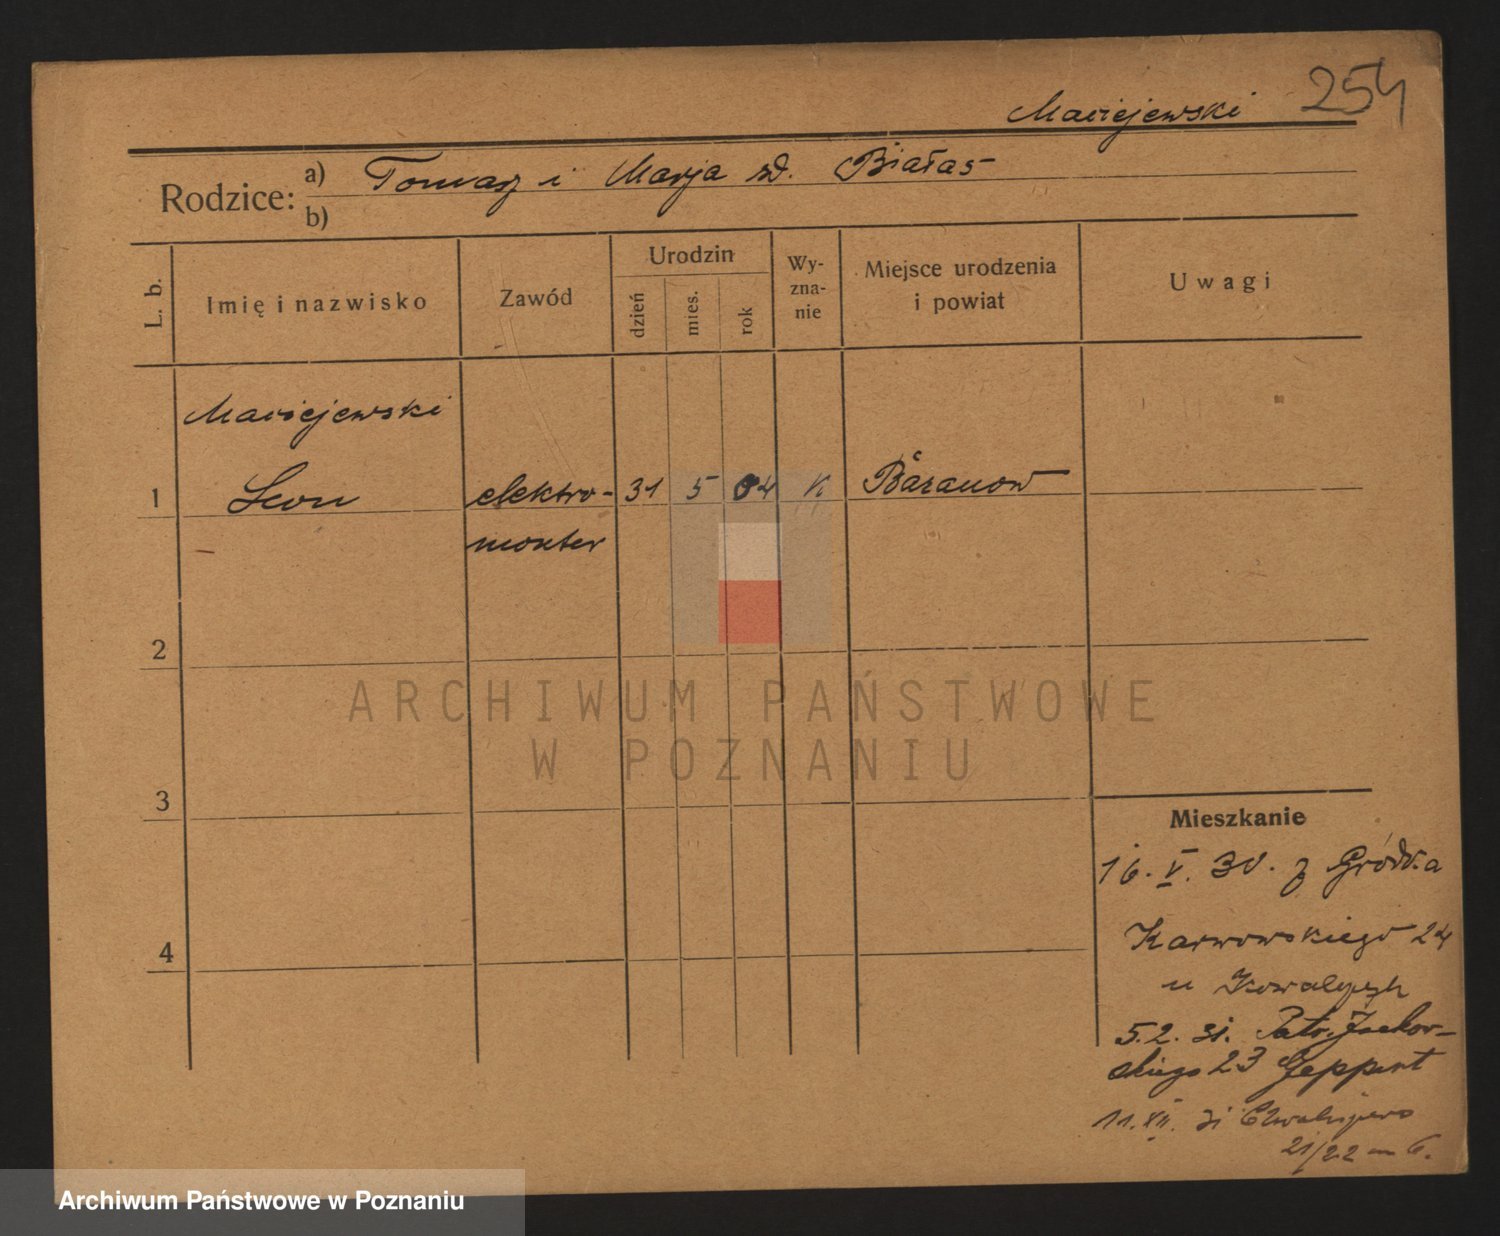 Maciejewski 254
Rodzice: a) Tomasz i Marja zd. Białas
b)
L. b. Imię i nazwisko Zawód Urodzin dzień mies. rok Wy-zna-nie Miejsce urodzenia i powiat Uwagi
Maciejewski
1 Leon elektro- 31 5 04 K Baranow
monter
2
ARCHIWUM PAŃSTWOWE
W POZNANIU
3
Mieszkanie
16. V. 30. z
4 Karwowskiego 24
u
5.2. 31. Patr. Jackow-
skiego 23 Geppert
11. XII. 31
21/22 m 6.
Archiwum Państwowe w Poznaniu